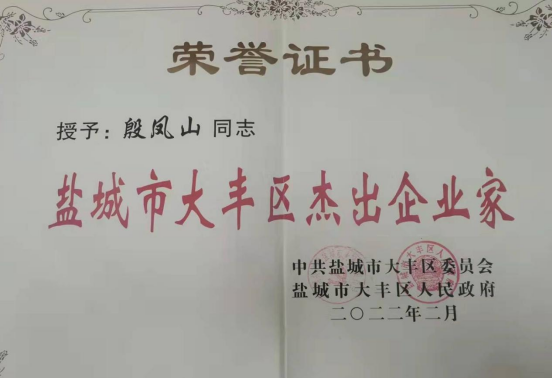 荣誉证书
授予：殷凤山 同志
盐城市大丰区杰出企业家
中共盐城市大丰区委员会
盐城市大丰区人民政府
二〇二二年二月